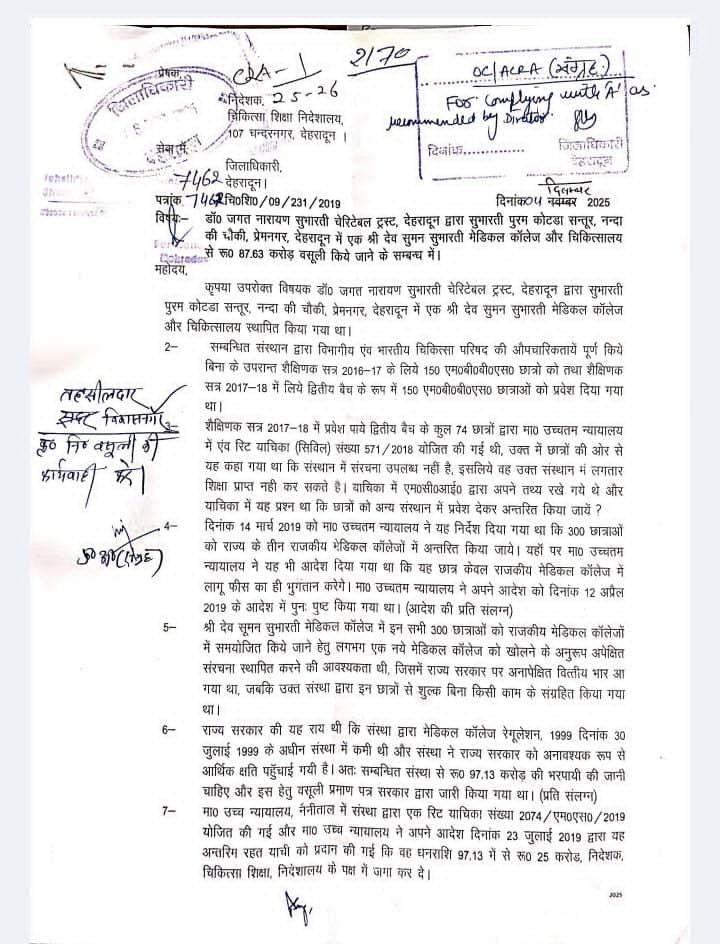 2170
CRA-1
25-26
OC/ACRA (संग्रह)
For complying with 'A' as
recommended by Director.
दिनांक..............
जिलाधिकारी
देहरादून
प्रेषक,
जिलाधिकारी
निदेशक,
चिकित्सा शिक्षा निदेशालय,
107 चन्दरनगर, देहरादून ।
सेवा में,
जिलाधिकारी,
7462 देहरादून।
पत्रांक, 7462 चि0शि0/09/231/2019
दिसम्बर
दिनांक 04 नवम्बर 2025
विषयः– डॉ0 जगत नारायण सुभारती चेरिटेबल ट्रस्ट, देहरादून द्वारा सुभारती पुरम कोटडा सन्तूर, नन्दा
की चौकी, प्रेमनगर, देहरादून में एक श्री देव सुमन सुभारती मेडिकल कॉलेज और चिकित्सालय
से रू0 87.63 करोड़ वसूली किये जाने के सम्बन्ध में।
महोदय,
कृपया उपरोक्त विषयक डॉ0 जगत नारायण सुभारती चेरिटेबल ट्रस्ट, देहरादून द्वारा सुभारती
पुरम कोटडा सन्तूर, नन्दा की चौकी, प्रेमनगर, देहरादून में एक श्री देव सुमन सुभारती मेडिकल कॉलेज
और चिकित्सालय स्थापित किया गया था।
2– सम्बन्धित संस्थान द्वारा विभागीय एंव भारतीय चिकित्सा परिषद की औपचारिकतायें पूर्ण किये
बिना के उपरान्त शैक्षणिक सत्र 2016-17 के लिये 150 एम0बी0बी0एस0 छात्रो को तथा शैक्षणिक
सत्र 2017-18 में लिये द्वितीय बैच के रूप में 150 एम0बी0बी0एस0 छात्राओं को प्रवेश दिया गया
था।
तहसीलदार
सदर विकासनगर
कृ0 नि0 वसूली की
कार्यवाही करें।
3– शैक्षणिक सत्र 2017-18 में प्रवेश पाये द्वितीय बैच के कुल 74 छात्रों द्वारा मा0 उच्चतम न्यायालय
में एंव रिट याचिका (सिविल) संख्या 571/2018 योजित की गई थी, उक्त में छात्रों की ओर से
यह कहा गया था कि संस्थान में संरचना उपलब्ध नहीं है, इसलिये वह उक्त संस्थान में लगतार
शिक्षा प्राप्त नही कर सकते है। याचिका में एम0सी0आई0 द्वारा अपने तथ्य रखे गये थे और
याचिका में यह प्रश्न था कि छात्रों को अन्य संस्थान में प्रवेश देकर अन्तरित किया जायें ?
4– दिनांक 14 मार्च 2019 को मा0 उच्चतम न्यायालय ने यह निर्देश दिया गया था कि 300 छात्राओं
को राज्य के तीन राजकीय मेडिकल कॉलेजों में अन्तरित किया जाये। यहाँ पर मा0 उच्चतम
न्यायालय ने यह भी आदेश दिया गया था कि यह छात्र केवल राजकीय मेडिकल कॉलेज में
लागू फीस का ही भुगतान करेगे। मा0 उच्चतम न्यायालय ने अपने आदेश को दिनांक 12 अप्रैल
2019 के आदेश में पुनः पुष्ट किया गया था। (आदेश की प्रति संलग्न)
5– श्री देव सूमन सुभारती मेडिकल कॉलेज में इन सभी 300 छात्राओं को राजकीय मेडिकल कॉलेजों
में समयोजित किये जाने हेतु लगभग एक नये मेडिकल कॉलेज को खोलने के अनुरूप अपेक्षित
संरचना स्थापित करने की आवश्यकता थी, जिसमें राज्य सरकार पर अनापेक्षित वित्तीय भार आ
गया था, जबकि उक्त संस्था द्वारा इन छात्रों से शुल्क बिना किसी काम के संग्रहित किया गया
था।
6– राज्य सरकार की यह राय थी कि संस्था द्वारा मेडिकल कॉलेज रेगूलेशन, 1999 दिनांक 30
जुलाई 1999 के अधीन संस्था में कमी थी और संस्था ने राज्य सरकार को अनावश्यक रूप से
आर्थिक क्षति पहुँचाई गयी है। अतः सम्बन्धित संस्था से रू0 97.13 करोड़ की भरपायी की जानी
चाहिए और इस हेतु वसूली प्रमाण पत्र सरकार द्वारा जारी किया गया था। (प्रति संलग्न)
7– मा0 उच्च न्यायालय, नैनीताल में संस्था द्वारा एक रिट याचिका संख्या 2074/एम0एस0/2019
योजित की गई और मा0 उच्च न्यायालय ने अपने आदेश दिनांक 23 जुलाई 2019 द्वारा यह
अन्तरिम रहत याची को प्रदान की गई कि वह धनराशि 97.13 में से रू0 25 करोड, निदेशक,
चिकित्सा शिक्षा, निदेशालय के पक्ष में जमा कर दे।
2025